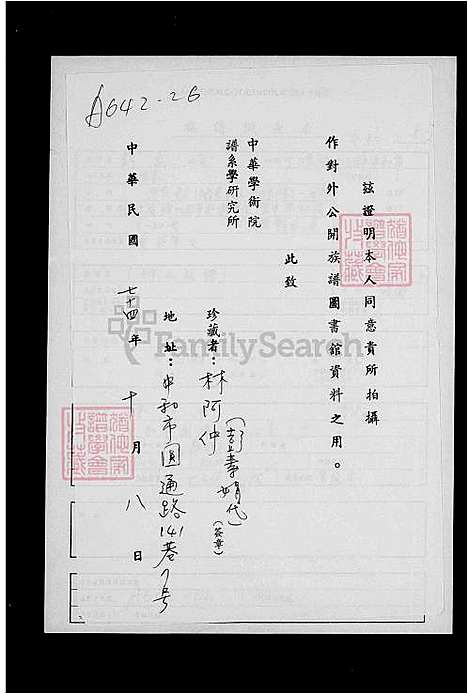 A642-26
茲證明本人同意貴所拍攝
作對外公開族譜圖書館資料之用。
此致
中華學術院
譜系學研究所
珍藏者：林阿仲（彭壽娟代）（簽章）
地址：中和市圓通路141巷7号
中華民國 七十四年 十月 八日
FamilySearch